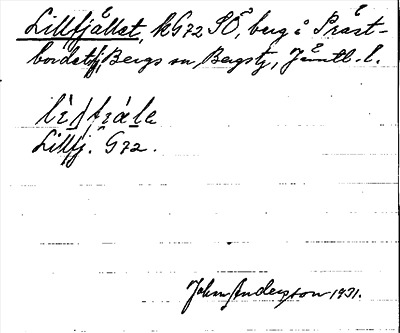 Lillfjället, kG72 SÖ, berg i Präst-
bordet, Bergs sn, Bergs tg, Jämtl. l.
Lillfj. G72.
John Andersson 1931.